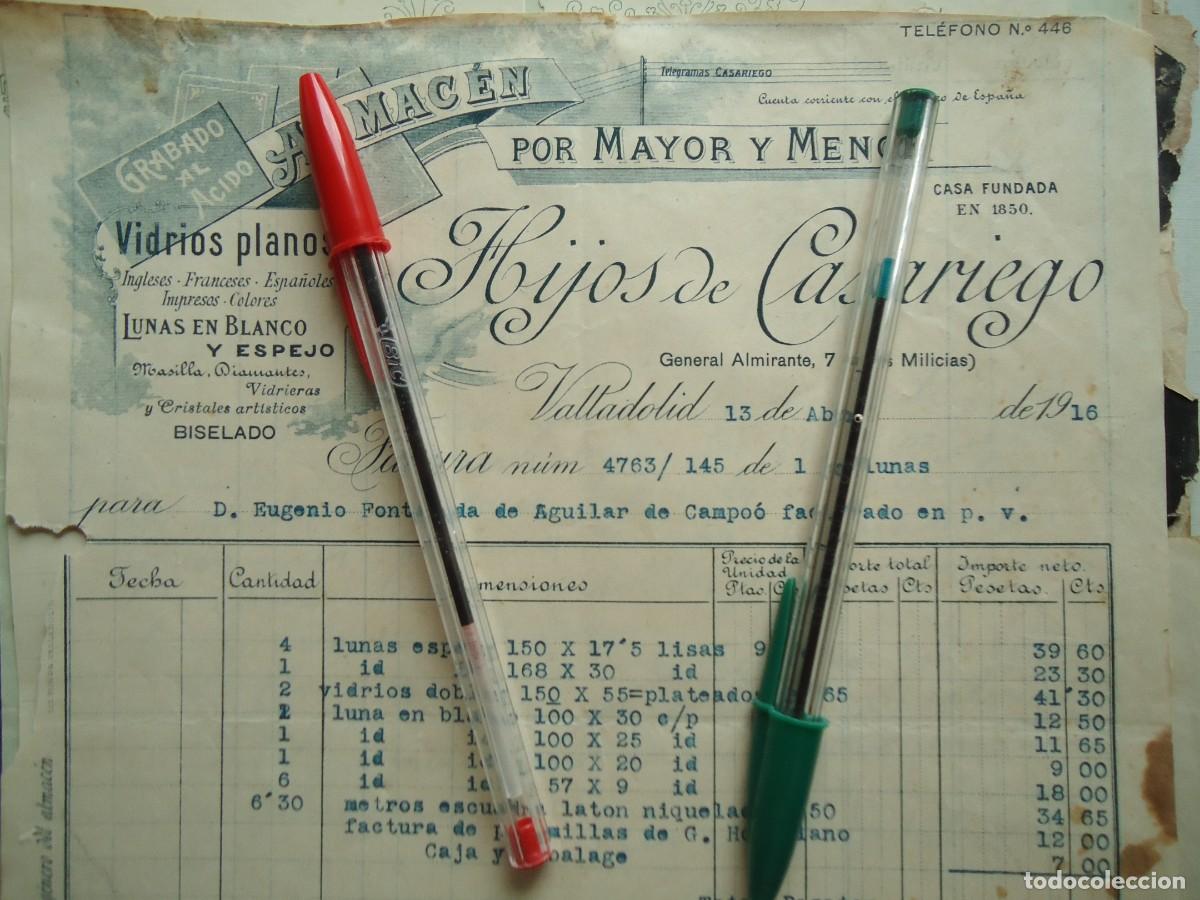 TELÉFONO N.º 446
Telegramas CASARIEGO
Cuenta corriente con el de España
ALMACÉN
POR MAYOR Y MENOR
GRABADO
AL
ACIDO
CASA FUNDADA
EN 1850.
Vidrios planos
Ingleses - Franceses - Españoles
Impresos - Colores
LUNAS EN BLANCO
Y ESPEJO
Masilla, Diamantes,
Vidrieras
y Cristales artísticos
BISELADO
Hijos de Casariego
General Almirante, 7 Milicias)
Valladolid 13 de Ab de 1916
Factura núm 4763/ 145 de 1 lunas
para D. Eugenio de Aguilar de Campoó en p. v.
Fecha Cantidad mensiones Precio de la Unidad Ptas. total Pesetas Cts Importe neto. Pesetas. Cts.
4 lunas 150 X 17'5 lisas 9 39 60
1 id 168 X 30 id 23 30
2 vidrios 150 X 55=plateados 65 41'30
1 luna en 100 X 30 c/p 12 50
1 id 100 X 25 id 11 65
1 id 100 X 20 id 9 00
6 id 57 X 9 id 18 00
6'30 metros laton 50 34 65
factura de de G. 12 00
Caja y 7 00
BIC
género del almacén
todocoleccion